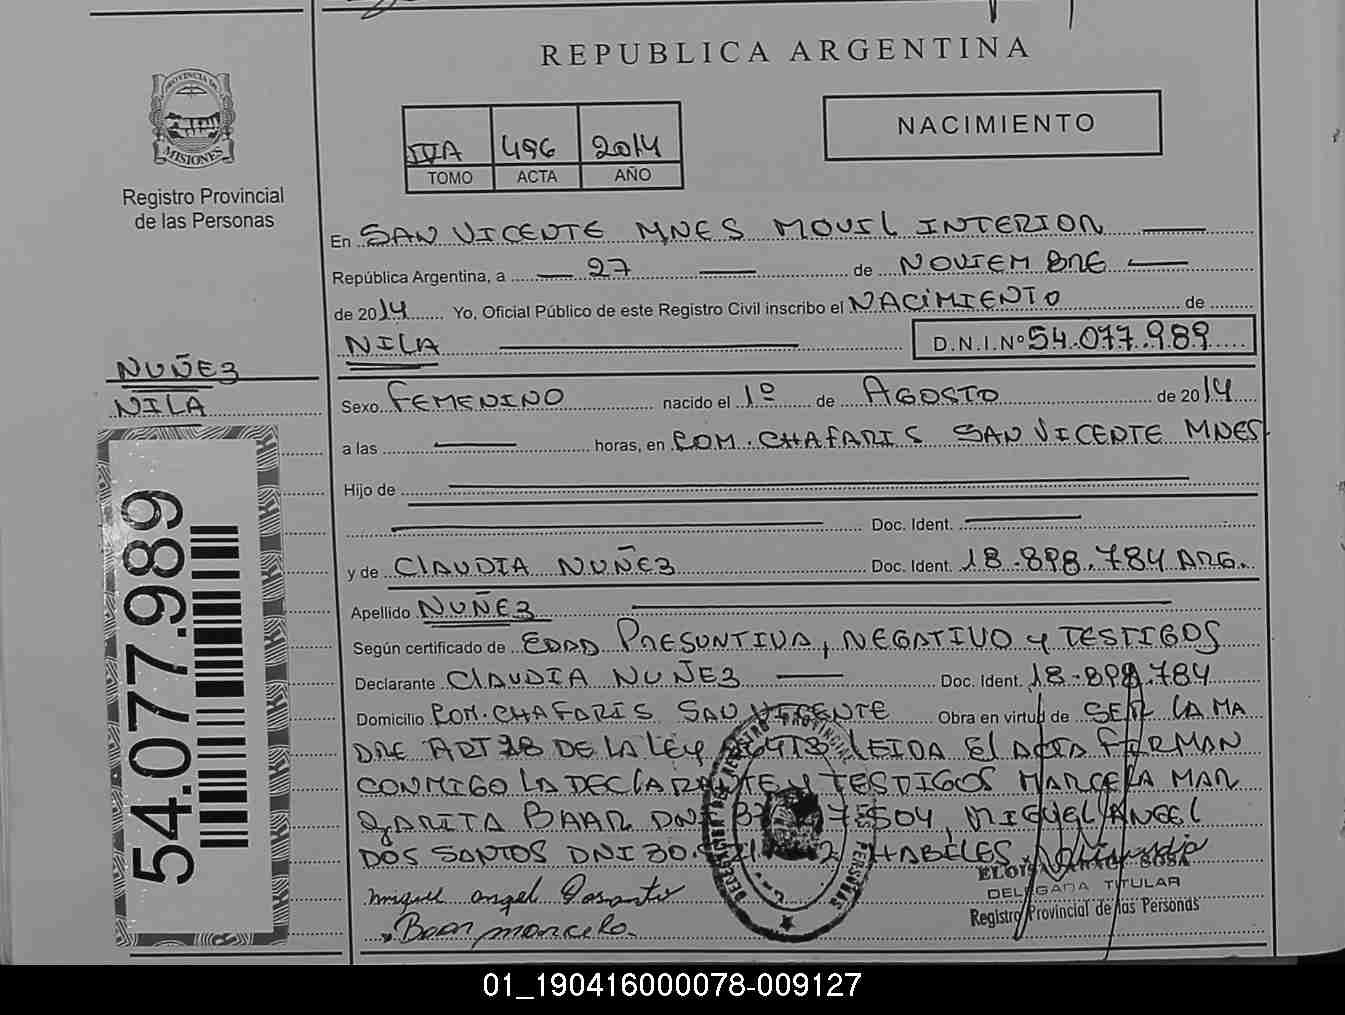 REPUBLICA ARGENTINA
PROVINCIA DE
MISIONES
Registro Provincial
de las Personas
IVA 496 2014
TOMO ACTA AÑO
NACIMIENTO
En SAN VICENTE MNES MOVIL INTERIOR
República Argentina, a 27 de NOVIEMBRE
de 2014 Yo, Oficial Público de este Registro Civil inscribo el NACIMIENTO de
NILA D.N.I.Nº 54.077.989
NUÑEZ
NILA
Sexo FEMENINO nacido el 1º de AGOSTO de 2014
a las horas, en ROM. CHAFARIS SAN VICENTE MNES
Hijo de
Doc. Ident.
y de CLAUDIA NUÑEZ Doc. Ident. 18.898.784 ARG.
Apellido NUÑEZ
Según certificado de EDAD PRESUNTIVA, NEGATIVO Y TESTIGOS
Declarante CLAUDIA NUÑEZ Doc. Ident. 18.898.784
Domicilio ROM. CHAFARIS SAN VICENTE Obra en virtud de SER LA MA
DRE ART 28 DE LA LEY 26413 LEIDA EL ACTA FIRMAN
CONMIGO LA DECLARANTE Y TESTIGOS MARCELA MAR
GARITA BAAR DNI 37 504, MIGUEL ANGEL
DOS SANTOS DNI 30. HABILES
miguel angel Dosantos
Baar marcela
54.077.989
DELEGACION DEL REGISTRO PROVINCIAL DE LAS PERSONAS
ELOISA SOSA
DELEGADA TITULAR
Registro Provincial de las Personas
01_190416000078-009127